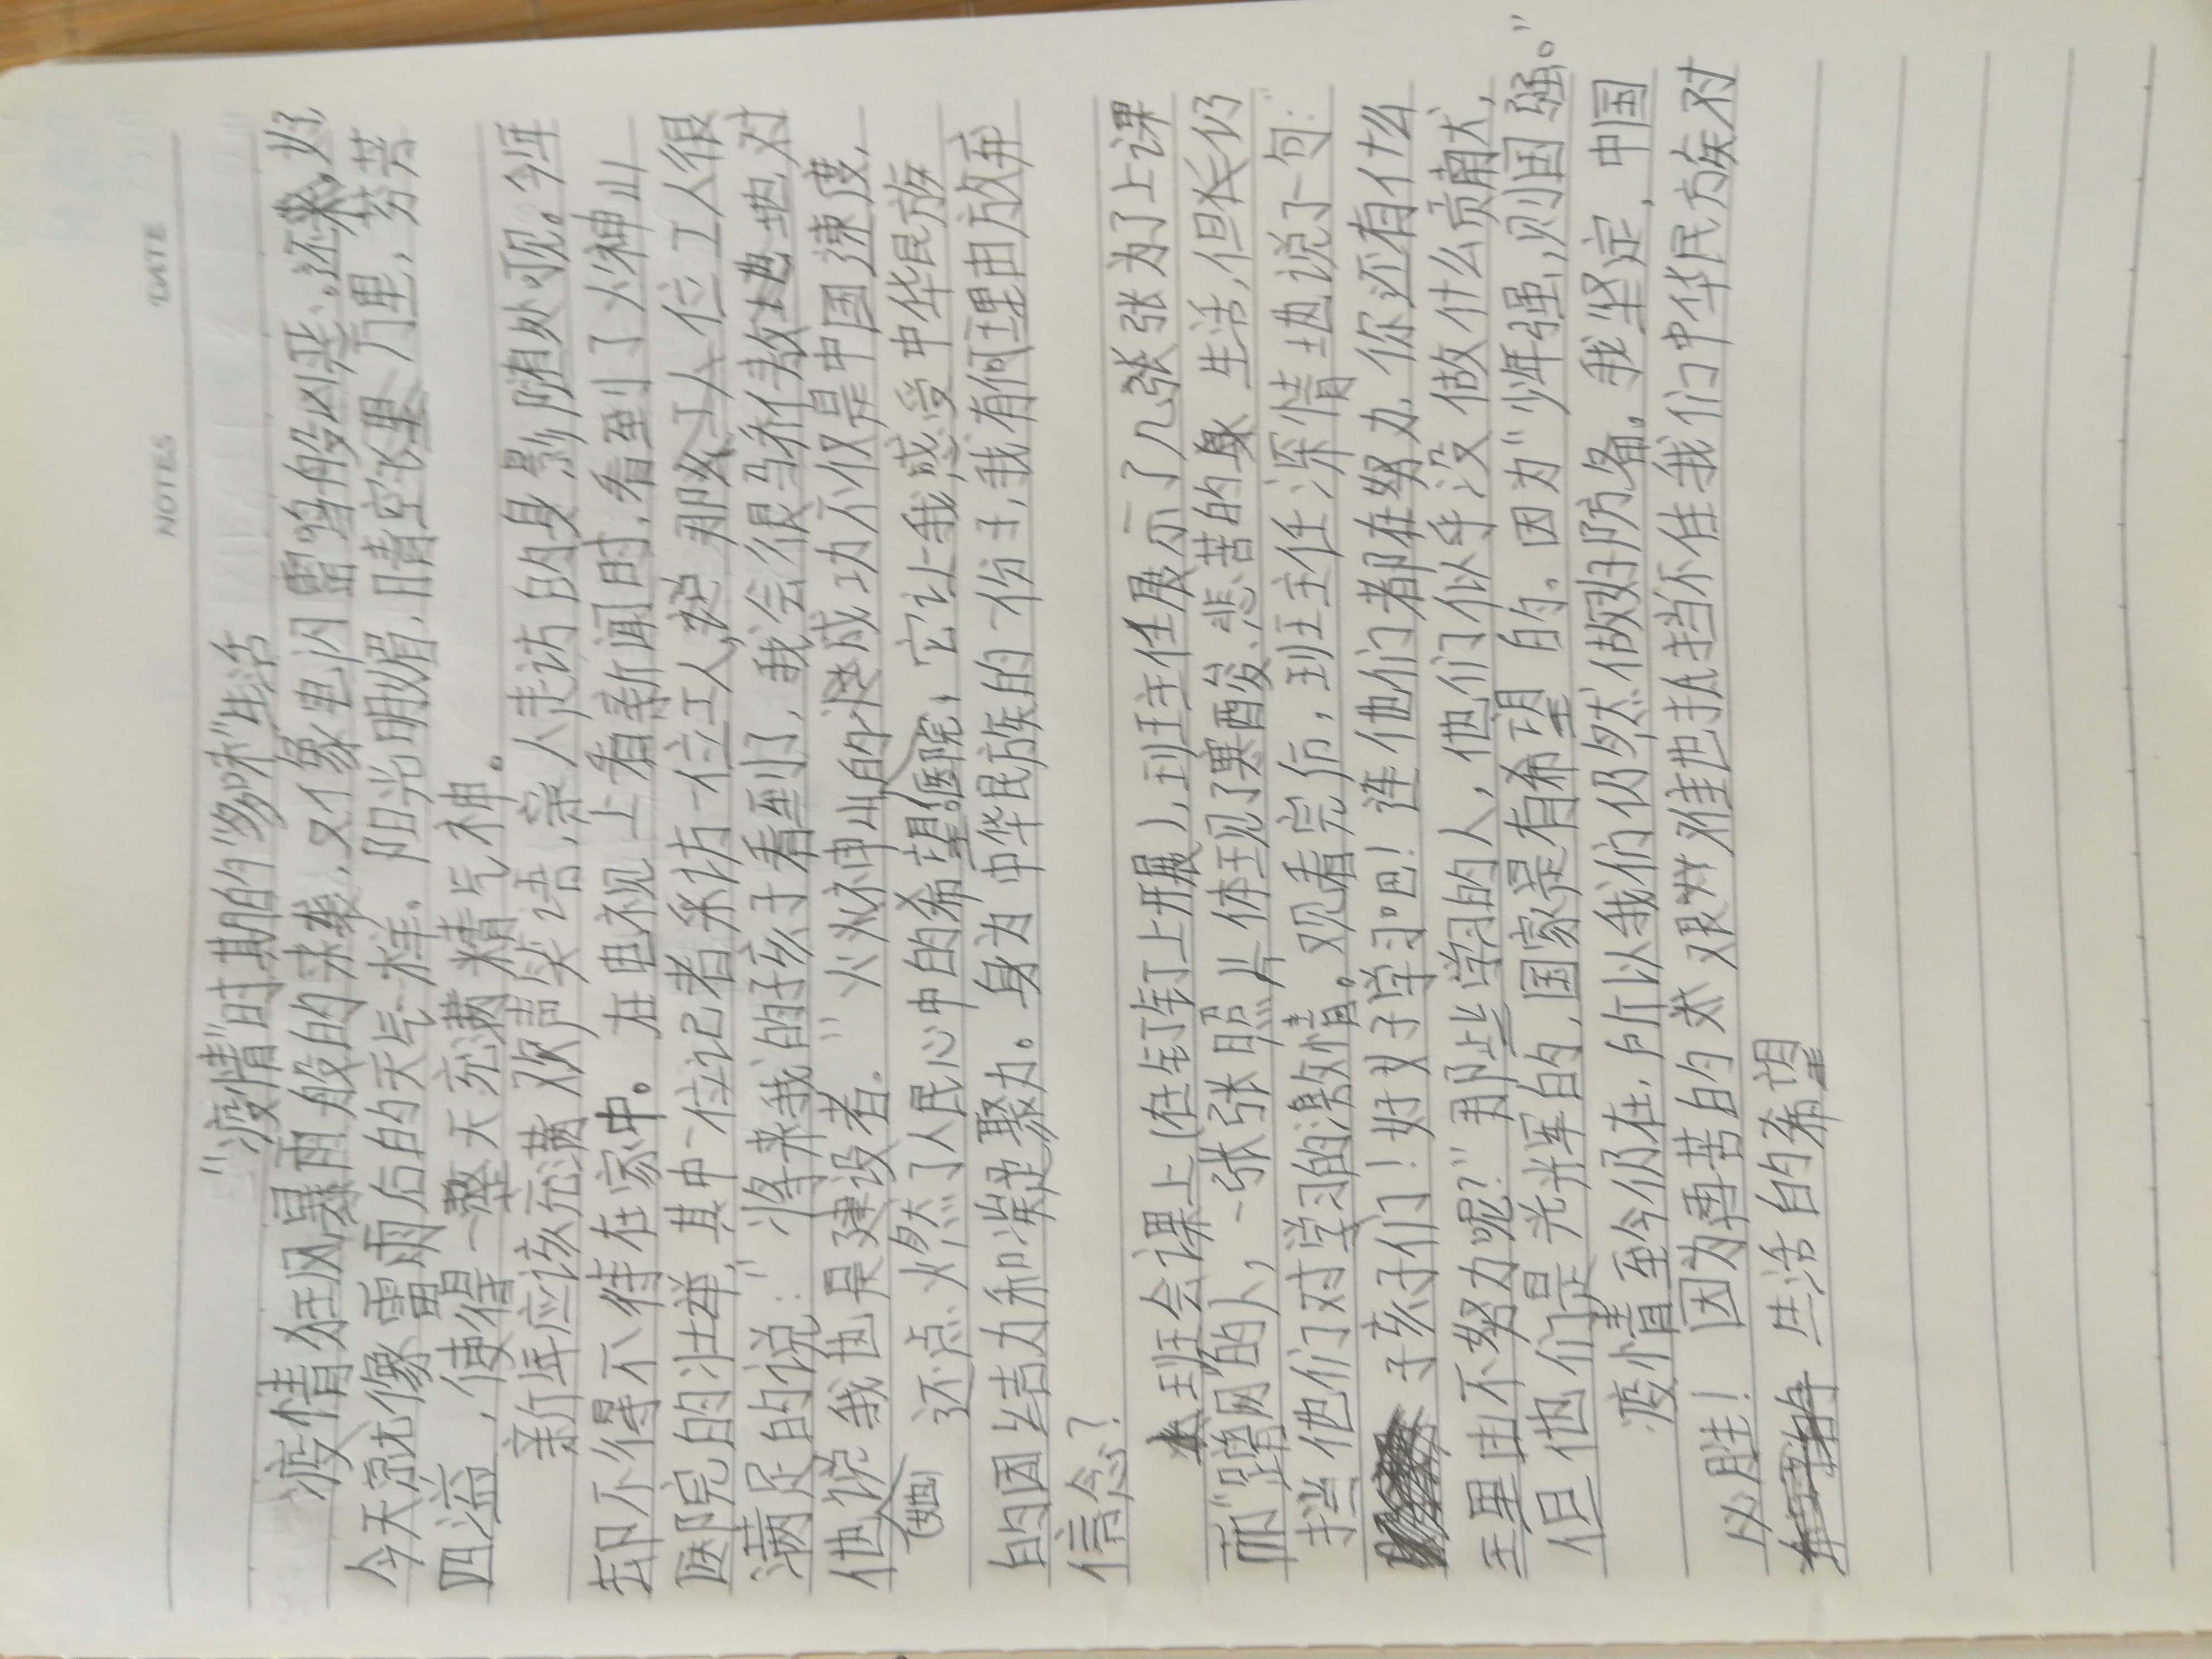 NOTES DATE
“疫情”时期的“多味”生活
疫情狂风暴雨般的来袭，又像电闪雷鸣般凶悲。还好，
今天就像雷雨后的天气一样。阳光明媚，晴空万里，芬芳
四溢，使得一整天充满精气神。
新年应该充满欢声笑语，亲人走访的身影随处可见。今年
却不得不待在家中。在电视上看新闻时，看到了火神山
医院的壮举，其中一位记者采访一位工人，那位工人很
满足的说：“将来我的孩子看到了，我会很骄傲地对
他说我也是建设者。”火神山的建成功不仅是中国速度，
(她) 还点燃了人民心中的希望，它让我感受中华民族
的团结力和凝聚力。身为中华民族的一份子，我有何理由放弃
信念？
班会课上(在钉钉上开展)，班主任展示了几张张为了上课
而“蹭网”的人，一张张照片体现了寒酸、悲苦的生活，但长仍
挡他们对学习的激情。观看完后，班主任深情地说了一句：“
孩子们！好好学习吧！连他们都在努力，你还有什么
理由不努力呢？”那些学习的人，他们似乎没做什么贡献，
但他们是光辉的，国家是有希望的。因为“少年强，则国强。”
疫情至今仍在，所以我们仍然做好防备。我坚定，中国
必胜！因为再苦的艰难也抵挡不住我们中华民族对
生活的希望